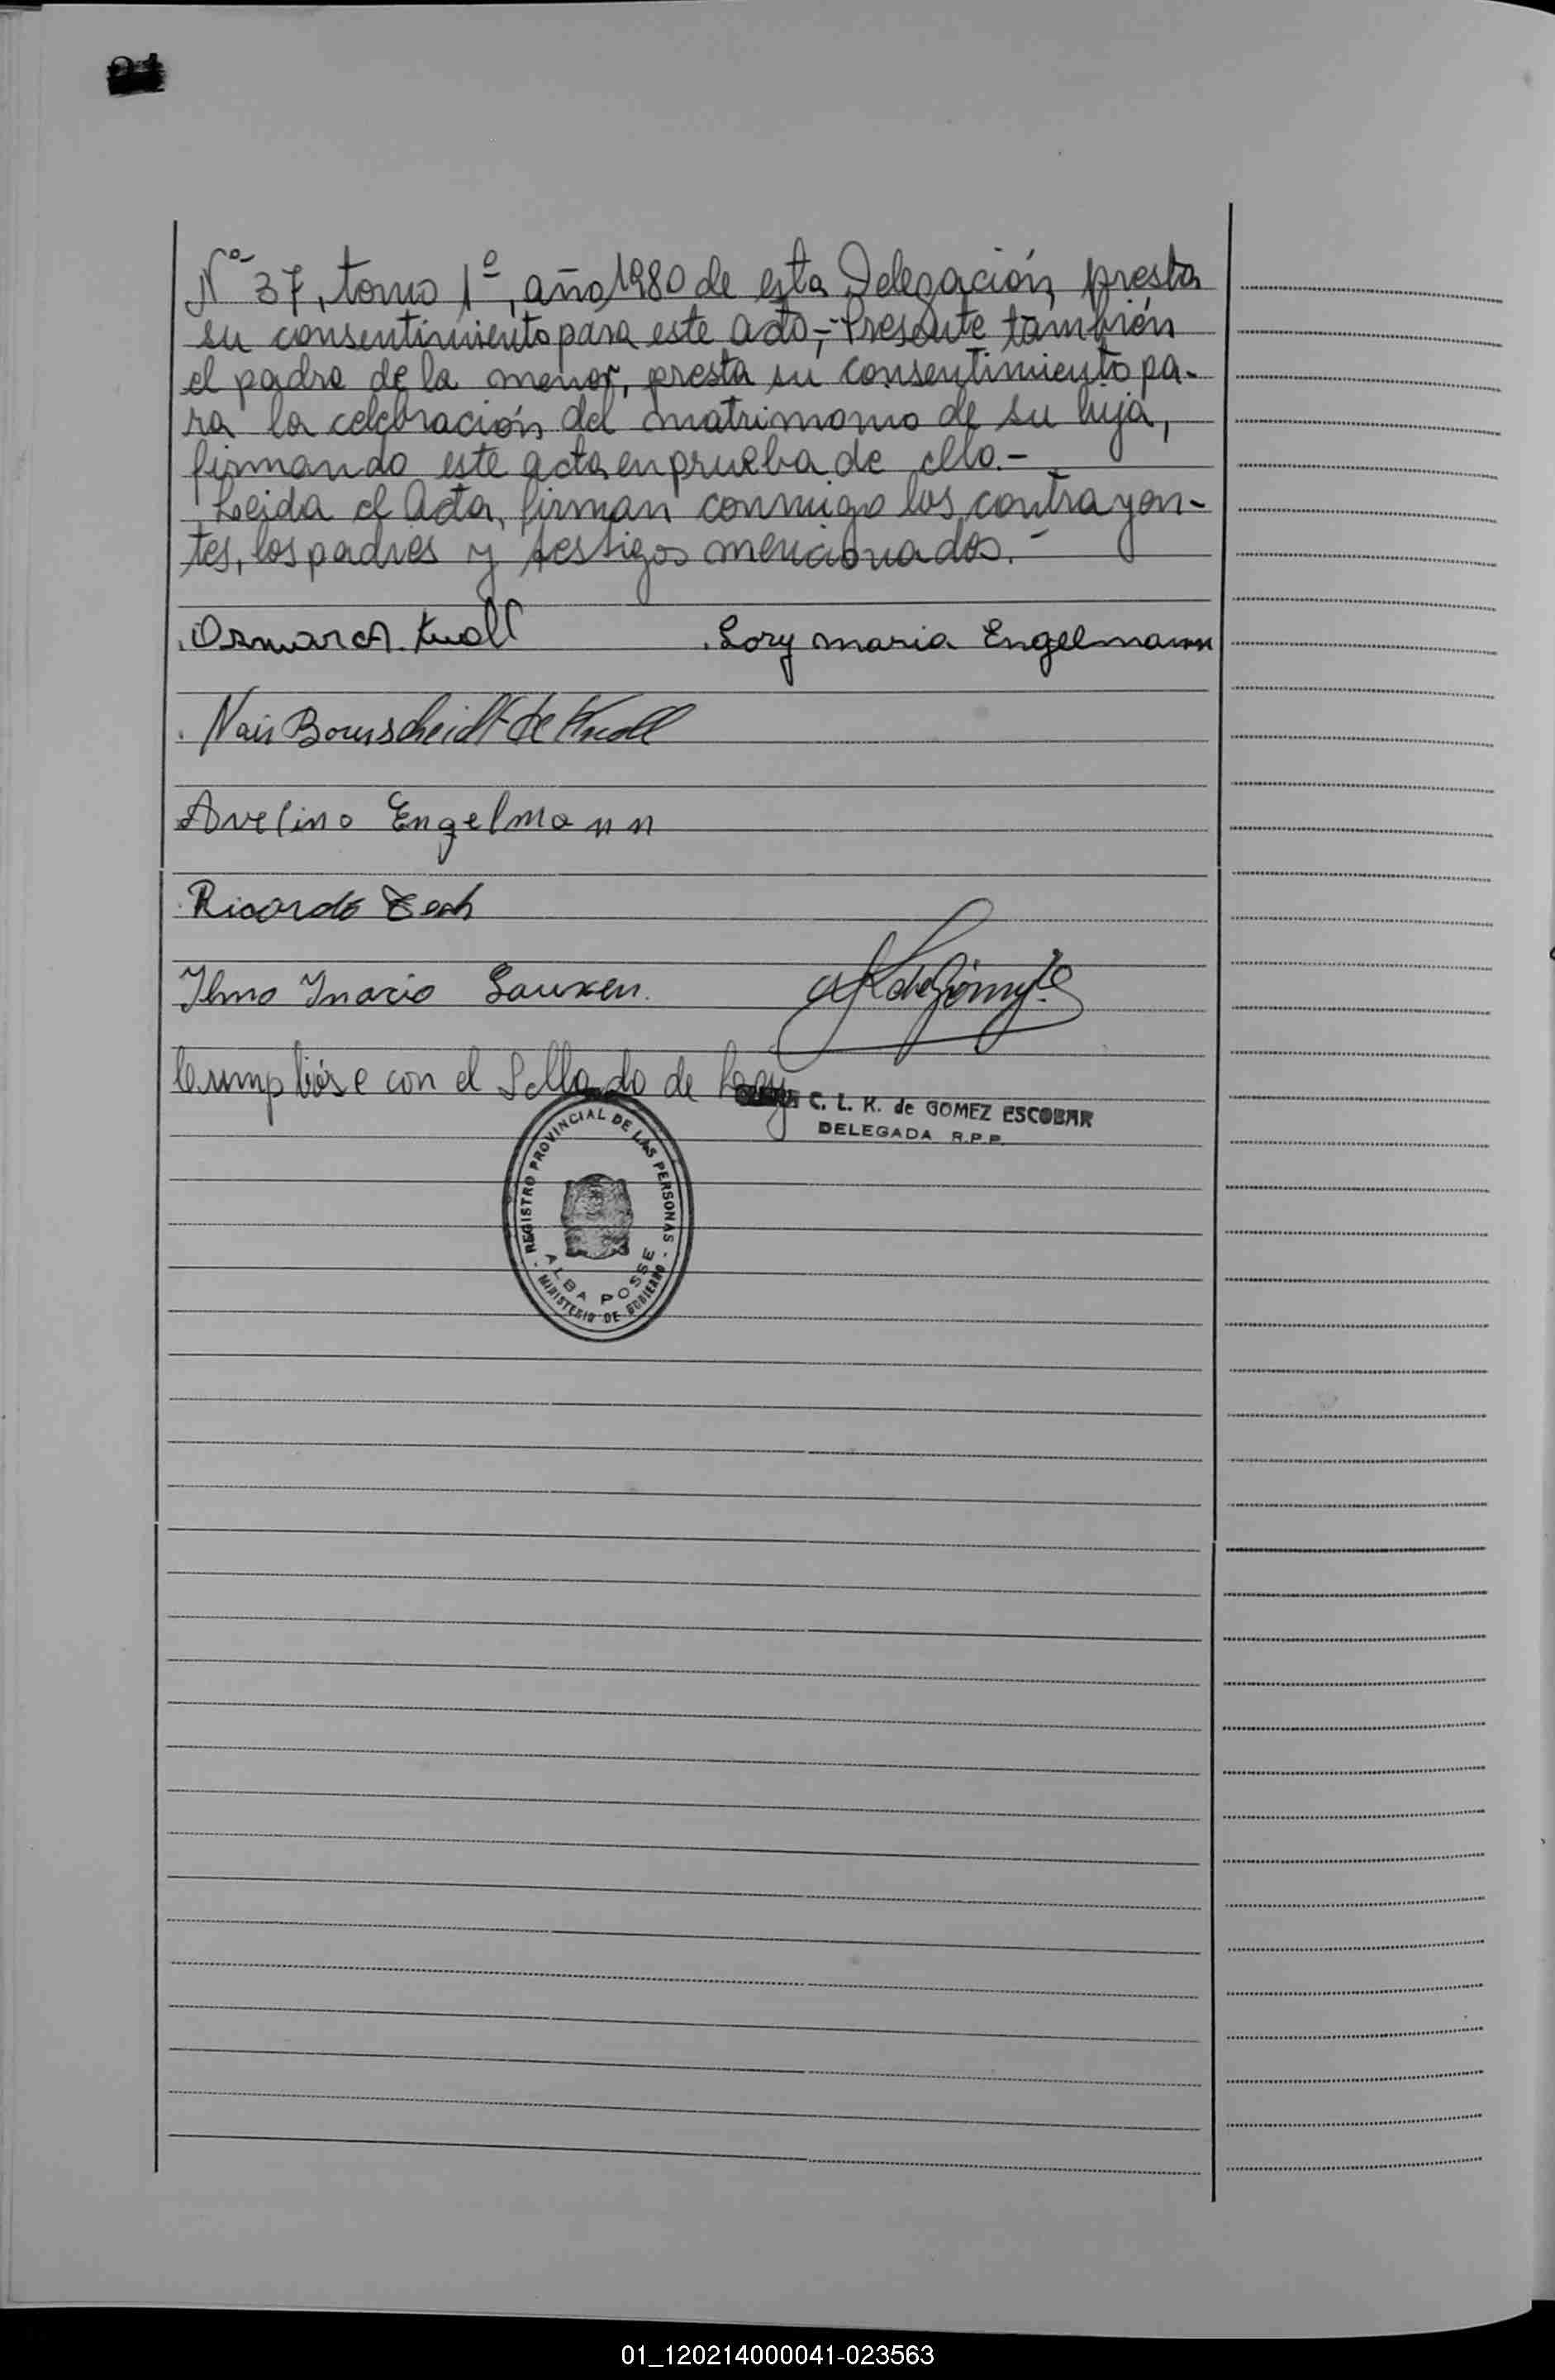 Nº 37, tomo 1º, año 1980 de esta Delegación, presta
su consentimiento para este acto.- Presente también
el padre de la menor, presta su consentimiento pa-
ra la celebración del matrimonio de su hija,
firmando este acta en prueba de ello.-
Leida el Acta, firman conmigo los contrayen-
tes, los padres y testigos mencionados.-
Osmar A. Knoll
Lory maria Engelmann
Nair Bourscheidt de Knoll
Avelino Engelmann
Ricardo Zech
Ilmo Inacio Lauxen.
Cumplióse con el Sellado de Ley
C. L. K. de GOMEZ ESCOBAR
DELEGADA R.P.P.
REGISTRO PROVINCIAL DE LAS PERSONAS
ALBA POSSE
- MINISTERIO DE GOBIERNO -
01_120214000041-023563